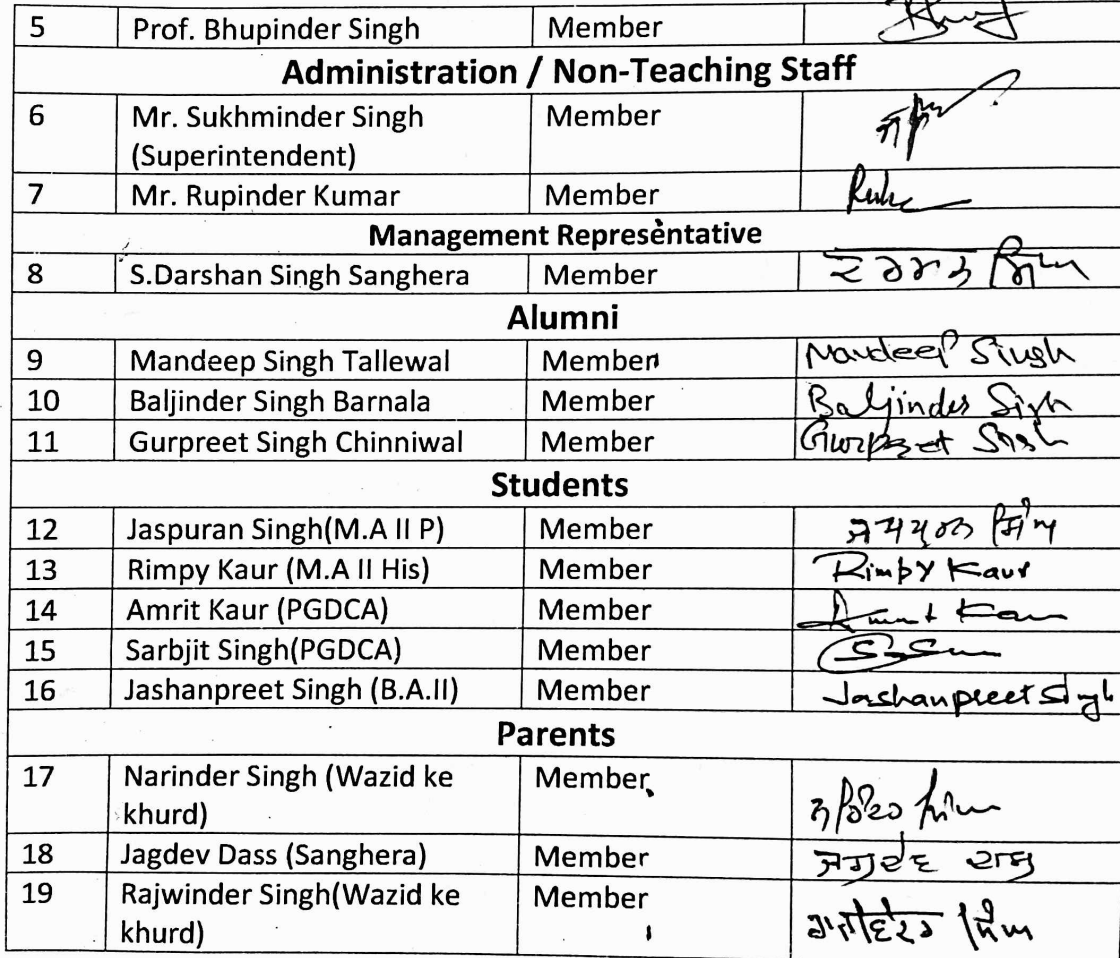 5 Prof. Bhupinder Singh Member
Administration / Non-Teaching Staff
6 Mr. Sukhminder Singh Member
(Superintendent)
7 Mr. Rupinder Kumar Member
Management Representative
8 S.Darshan Singh Sanghera Member ਦਰਸ਼ਨ ਸਿੰਘ
Alumni
9 Mandeep Singh Tallewal Member Mandeep Singh
10 Baljinder Singh Barnala Member Baljinder Singh
11 Gurpreet Singh Chinniwal Member Gurpreet Singh
Students
12 Jaspuran Singh(M.A II P) Member ਜਸਪੂਰਨ ਸਿੰਘ
13 Rimpy Kaur (M.A II His) Member Rimpy Kaur
14 Amrit Kaur (PGDCA) Member Amrit Kaur
15 Sarbjit Singh(PGDCA) Member
16 Jashanpreet Singh (B.A.II) Member Jashanpreet Singh
Parents
17 Narinder Singh (Wazid ke Member
khurd) ਨਰਿੰਦਰ ਸਿੰਘ
18 Jagdev Dass (Sanghera) Member ਜਗਦੇਵ ਦਾਸ
19 Rajwinder Singh(Wazid ke Member
khurd) ਰਾਜਵਿੰਦਰ ਸਿੰਘ